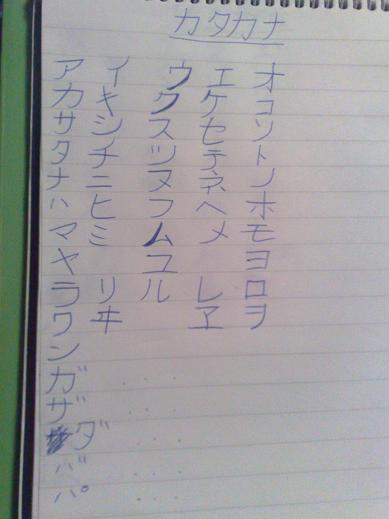 カタカナ
ア イ ウ エ オ
カ キ ク ケ コ
サ シ ス セ ソ
タ チ ツ テ ト
ナ ニ ヌ ネ ノ
ハ ヒ フ ヘ ホ
マ ミ ム メ モ
ヤ ユ ヨ
ラ リ ル レ ロ
ワ ヰ ヱ ヲ
ン
ガ . . .
ザ . . .
ダ . . .
バ . . .
パ . . .